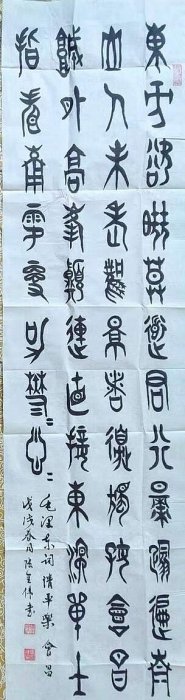 東方欲曉莫道君行早踏遍青
山人未老風景這邊獨好會昌
城外高峯顛連直接東溟戰士
指看南粵更加鬱〻蔥〻
毛澤東詞清平樂會昌
戊戌春月 書